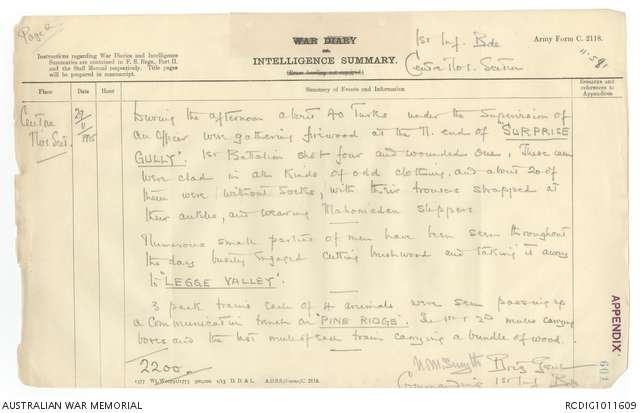 Page 2
Army Form C. 2118.
WAR DIARY
or
INTELLIGENCE SUMMARY.
(Erase heading not required.)
Instructions regarding War Diaries and Intelligence
Summaries are contained in F. S. Regs., Part II.
and the Staff Manual respectively. Title pages
will be prepared in manuscript.
1st Inf. Bde
Centre No 1. Section
Place
Date
Hour
Summary of Events and Information
Remarks and
references to
Appendices
Centre
No 1 Sec.
29
11
1915
During the afternoon about 40 Turks under the Supervision of
an Officer were gathering firewood at the N. end of "SURPRISE
GULLY". 1st Battalion shot four and wounded one, These men
were clad in all kinds of odd clothing, and about 20 of
them were without socks, with their trousers strapped at
their ankles, and wearing Mahomedan slippers
Numerous small parties of men have been seen throughout
the day busily engaged cutting brushwood and taking it away
to "LEGGE VALLEY".
3 pack trains each of 4 animals were seen passing up
a Communication trench on "PINE RIDGE". The 1st & 2nd mules carrying
boxes and the last mule of each train carrying a bundle of wood.
2200.
Brig Genl
Commanding 1st Inf. Bde
APPENDIX
601
1577 Wt. W10791/1773 500,000 1/15 D. D. & L. A.D.S.S./Forms/C. 2118.
AUSTRALIAN WAR MEMORIAL
RCDIG1011609